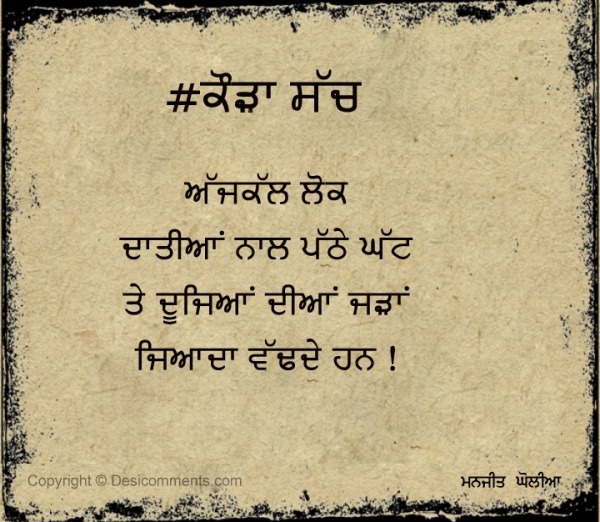 #ਕੌੜਾ ਸੱਚ
ਅੱਜਕੱਲ ਲੋਕ
ਦਾਤੀਆਂ ਨਾਲ ਪੱਠੇ ਘੱਟ
ਤੇ ਦੂਜਿਆਂ ਦੀਆਂ ਜੜ੍ਹਾਂ
ਜਿਆਦਾ ਵੱਢਦੇ ਹਨ !
Copyright © Desicomments.com
ਮਨਜੀਤ ਘੋਲੀਆ